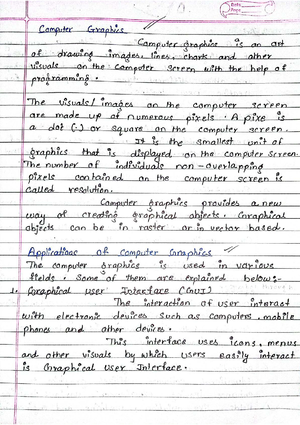 Date
Page
Computer Graphics
Computer graphics is an art
of drawing images, lines, charts and other
visuals on the computer screen with the help of
programming.
The visuals/images on the computer screen
are made up of numerous pixels. A pixe is
a dot (.) or square on the computer screen.
It is the smallest unit of
graphics that is displayed on the computer screen.
The number of individuals non-overlapping
pixels contained on the computer screen is
called resolution.
Computer graphics provides a new
way of creating graphical objects. Graphical
objects can be in raster or in vector based.
Applications of Computer Graphics
The computer graphics is used in various
fields. Some of them are explained below:-
1. Graphical User Interface (GUI)
The interaction of user interast
with electronic devices such as computers, mobile
phones and other devices.
This interface uses icons, menus
and other visuals by which users easily interact
is Graphical User Interface.